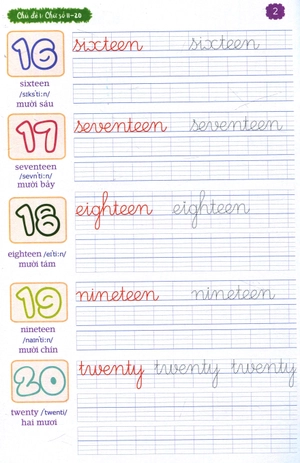 Chủ đề 1: Chữ số 11-20
2
16
sixteen sixteen
sixteen
/sɪks'ti:n/
mười sáu
17
seventeen seventeen
seventeen
/sevn'ti:n/
mười bảy
18
eighteen eighteen
eighteen /eɪ'ti:n/
mười tám
19
nineteen nineteen
nineteen
/naɪn'ti:n/
mười chín
20
twenty twenty twenty
twenty /'twenti/
hai mươi